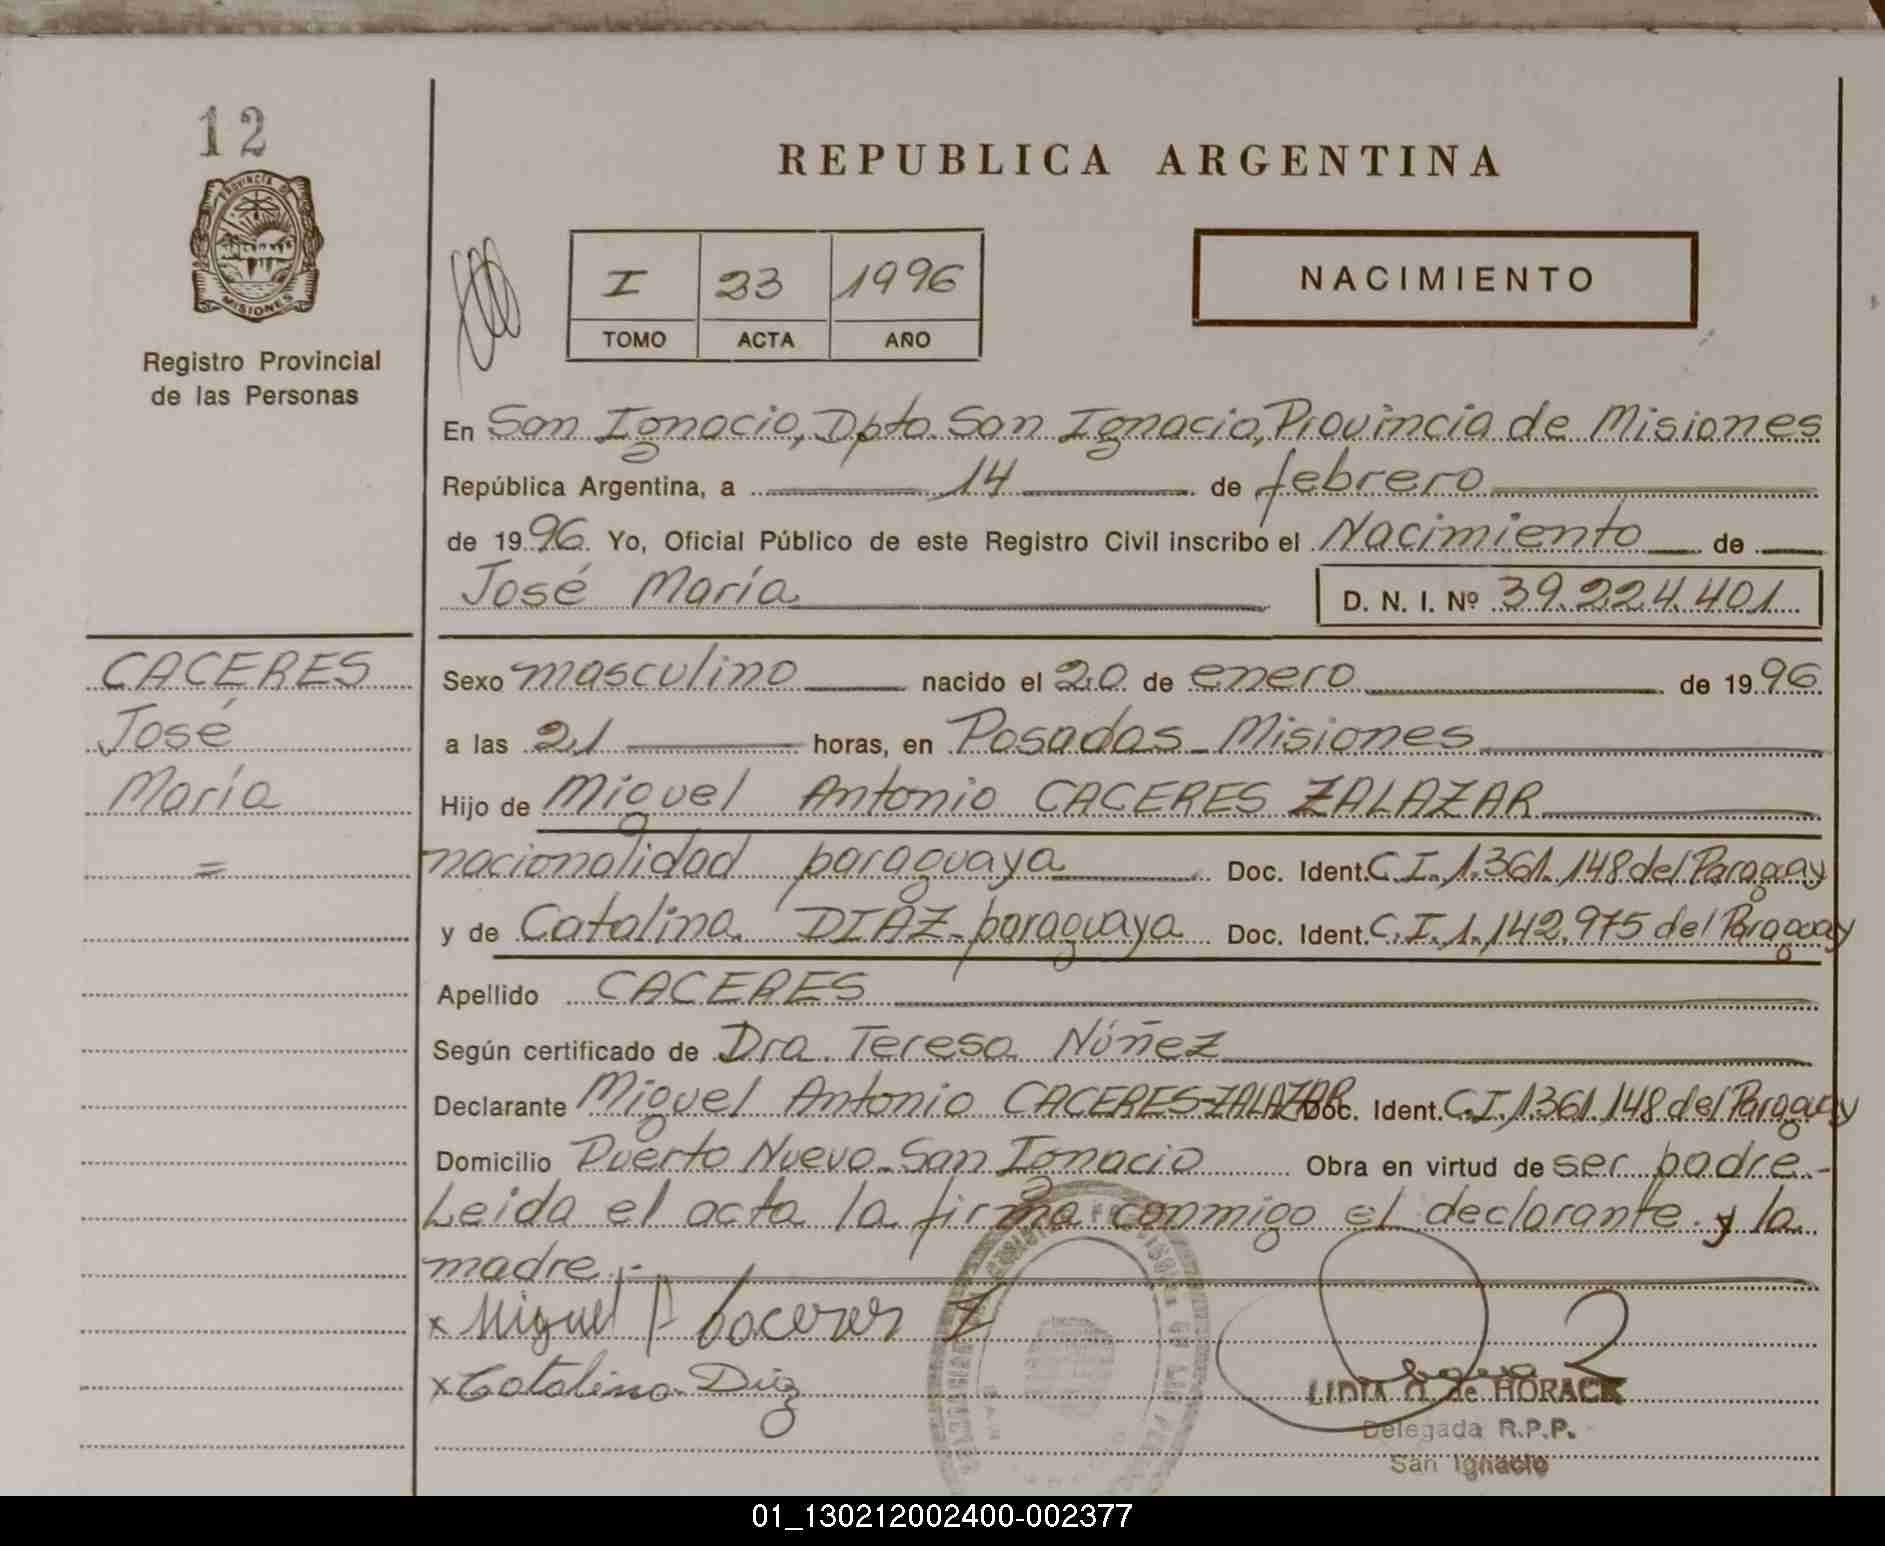 12
PROVINCIA D
MISIONES
Registro Provincial
de las Personas
REPUBLICA ARGENTINA
I 23 1996
TOMO ACTA AÑO
NACIMIENTO
En San Ignacio, Dpto. San Ignacio, Provincia de Misiones
República Argentina, a 14 de febrero
de 1996. Yo, Oficial Público de este Registro Civil inscribo el Nacimiento de
José María D. N. I. Nº 39.224.401
CACERES
José
María
=
Sexo masculino nacido el 20 de enero de 1996
a las 21 horas, en Posadas - Misiones
Hijo de Miguel Antonio CACERES ZALAZAR
nacionalidad paraguaya Doc. Ident. C.I. 1.361.148 del Paraguay
y de Catalina DIAZ - paraguaya Doc. Ident. C.I. 1.142.975 del Paraguay
Apellido CACERES
Según certificado de Dra. Teresa Núñez
Declarante Miguel Antonio CACERES-ZALAZAR Doc. Ident. C.I. 1361.148 del Paraguay
Domicilio Puerto Nuevo - San Ignacio Obra en virtud de ser padre.-
Leida el acta la firma conmigo el declarante y la
madre.-
x Miguel A Caceres Z
x Catalina Diaz
LIDIA O. de HORACK
Delegada R.P.P.
San Ignacio
01_130212002400-002377